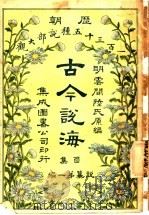 歷朝
一百三十五種說部大觀
明雲間陸氏原編
古今說海
集
說纂
集成圖書公司印行